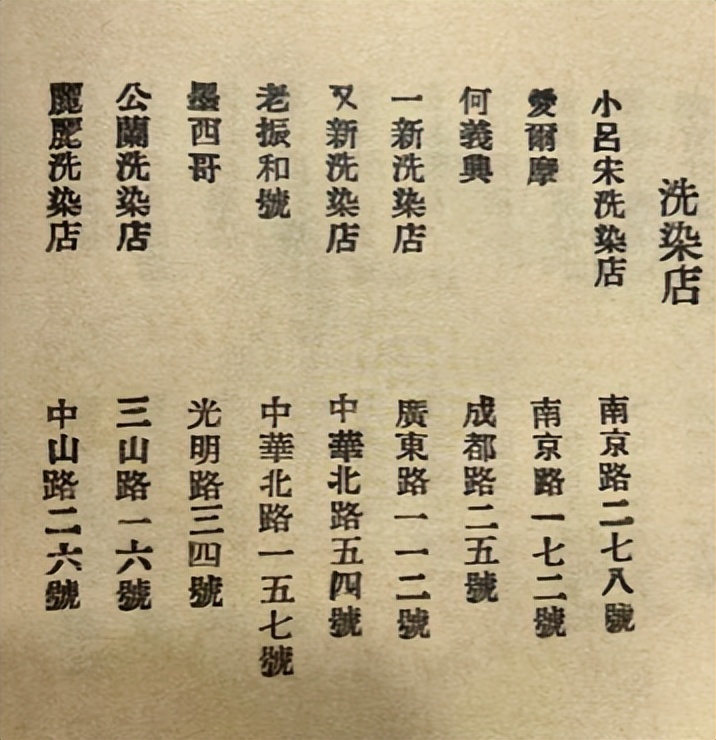 洗染店
小呂宋洗染店 南京路二七八號
愛爾摩 南京路一七二號
何義興 成都路二五號
一新洗染店 廣東路一一二號
又新洗染店 中華北路五四號
老振和號 中華北路一五七號
墨西哥 光明路三四號
公蘭洗染店 三山路一六號
麗洗染店 中山路二六號